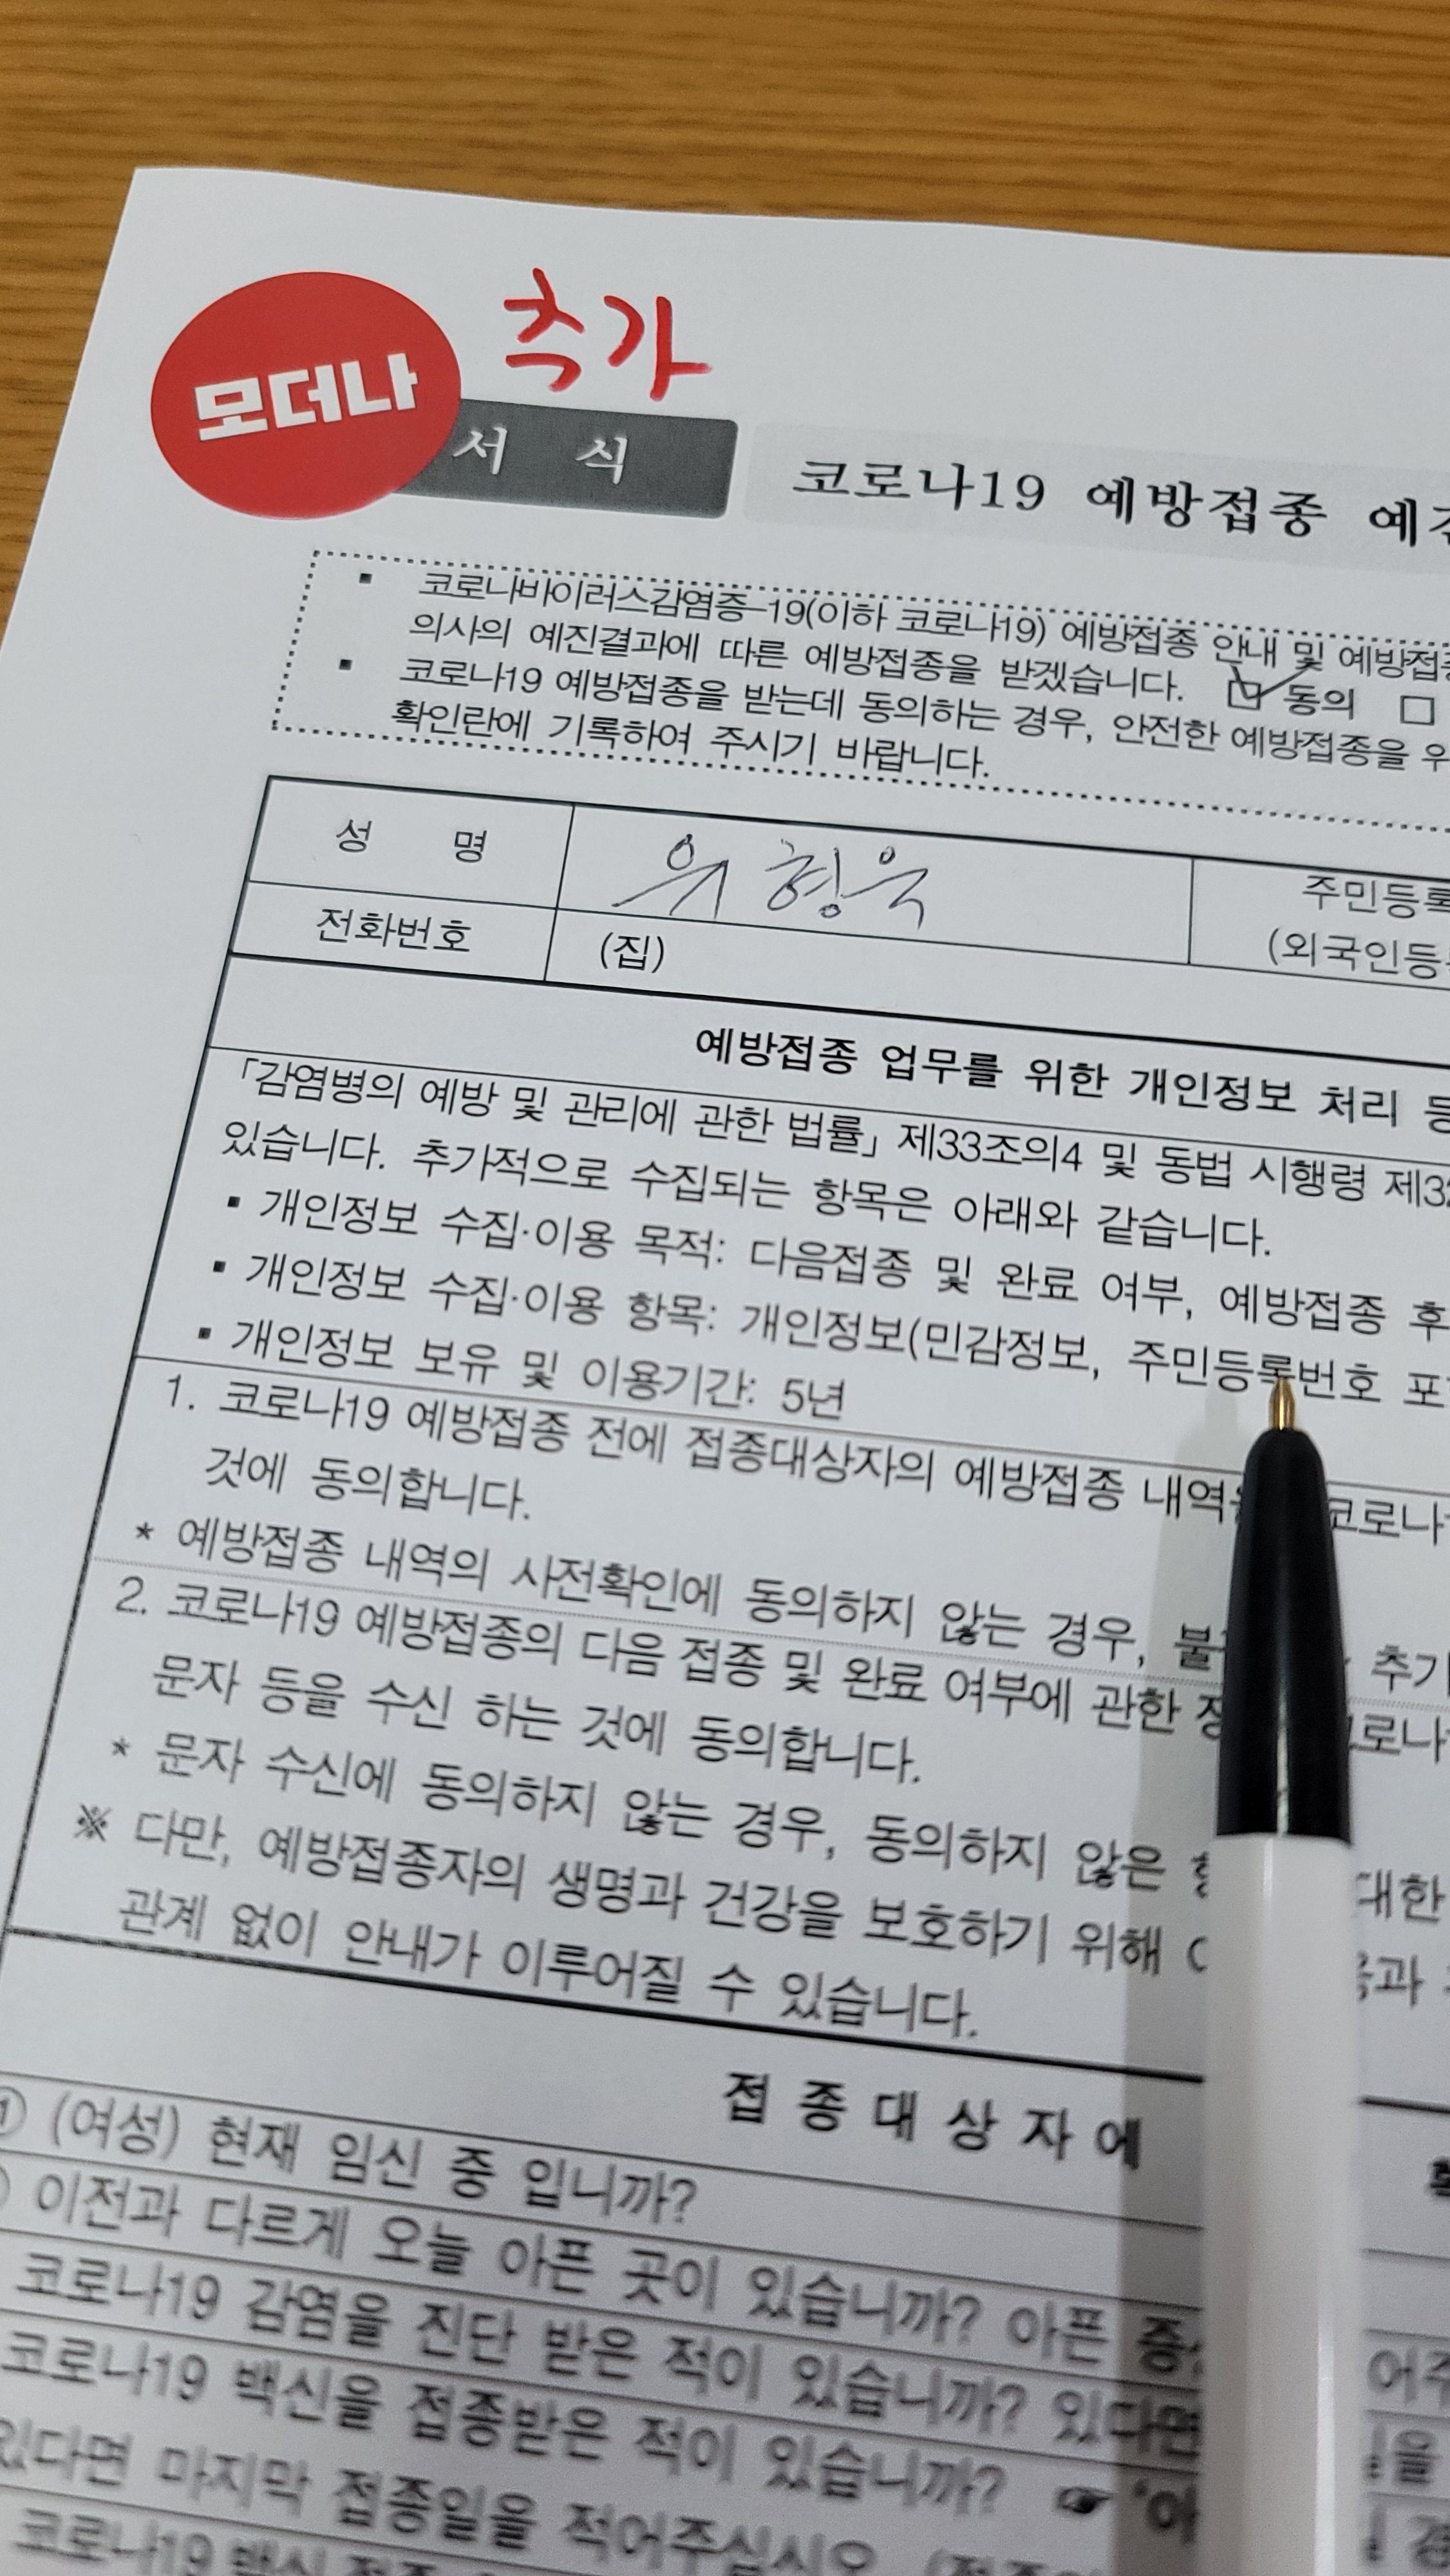 추가
모더나
서 식
코로나19 예방접종 예
▪ 코로나바이러스감염증-19(이하 코로나19) 예방접종 안내 및 예방접
의사의 예진결과에 따른 예방접종을 받겠습니다. ☑ 동의 □
▪ 코로나19 예방접종을 받는데 동의하는 경우, 안전한 예방접종을
확인란에 기록하여 주시기 바랍니다.
성 명 위형욱 주민등록
(외국인등
전화번호 (집)
예방접종 업무를 위한 개인정보 처리
「감염병의 예방 및 관리에 관한 법률」 제33조의4 및 동법 시행령 제32
있습니다. 추가적으로 수집되는 항목은 아래와 같습니다.
▪ 개인정보 수집·이용 목적: 다음접종 및 완료 여부, 예방접종 후
▪ 개인정보 수집·이용 항목: 개인정보(민감정보, 주민등록번호 포
▪ 개인정보 보유 및 이용기간: 5년
1. 코로나19 예방접종 전에 접종대상자의 예방접종 내역 코로나
것에 동의합니다.
* 예방접종 내역의 사전확인에 동의하지 않는 경우, 불 추가
2. 코로나19 예방접종의 다음 접종 및 완료 여부에 관한 코로나
문자 등을 수신 하는 것에 동의합니다.
* 문자 수신에 동의하지 않는 경우, 동의하지 않은 대한
※ 다만, 예방접종자의 생명과 건강을 보호하기 위해 과
관계 없이 안내가 이루어질 수 있습니다.
접 종 대 상 자 에
① (여성) 현재 임신 중 입니까?
이전과 다르게 오늘 아픈 곳이 있습니까? 아픈 증 어주
코로나19 감염을 진단 받은 적이 있습니까? 있다면 을
코로나19 백신을 접종받은 적이 있습니까? ☞ '아
있다면 마지막 접종일을 적어주십시오.
코로나19 백신